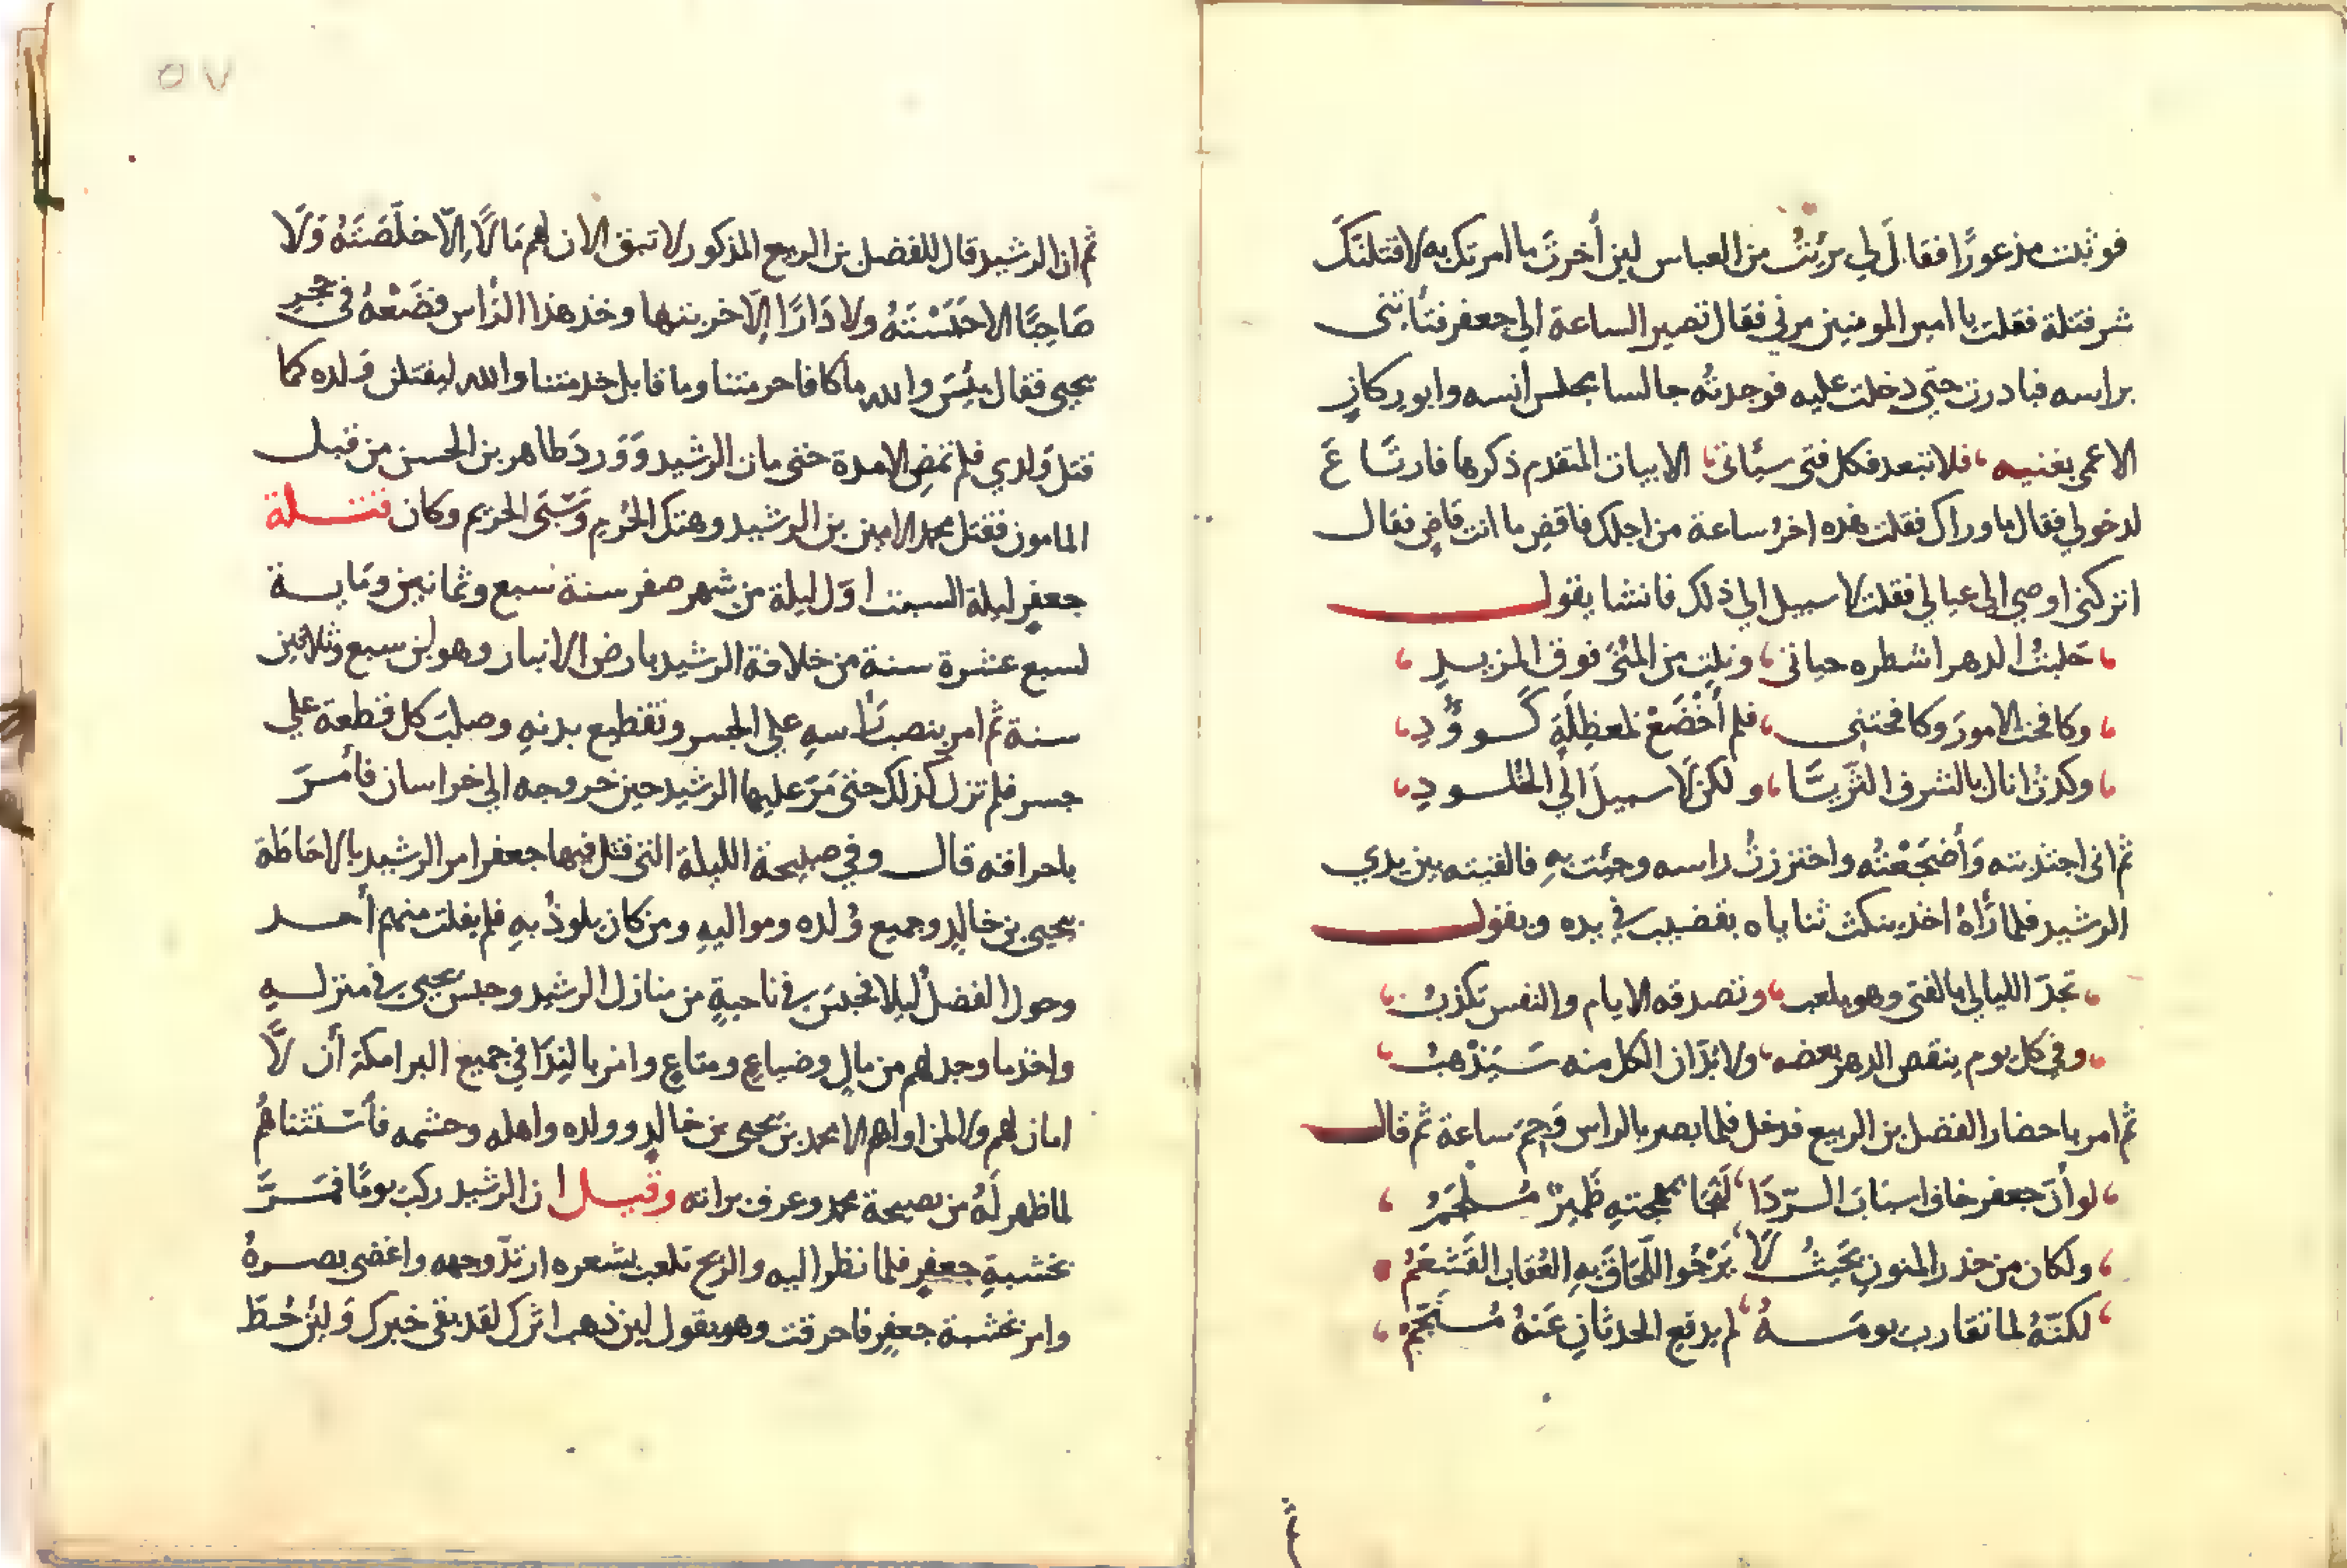 فوثبت مذعورًا فقال لي برئتُ من العباس لين أخرتَ ما امرتك به لاقتلنكَ
شر قتلة فقلت يا امير المومنين مرني فقال تصير الساعة الي جعفر فتأتيني
براسه فبادرت حتي دخلت عليه فوجدته جالسا بمجلس أنسه وابو ركاز
الاعمي يغنيه فلا تبعد فكل فتي سيأتي الابيات المتقدم ذكرها فارتاعَ
لدخولي فقال ما وراك فقلت هذه اخرُ ساعة من اجلك فاقض ما انت قاضٍ فقال
اتركني اوصي الي عيالي فقلت لا سبيل الي ذلك فانشا يقول
حَلبتُ الدهر اشطره حياتي ونلت من المُنَي فوق المزيدِ
وكافحتُ الامورَ وكافحتني فلم أَخْضَعْ لمعظِلَةٍ كَوودِ
وكدتُ انال بالشرف الثريَّا ولكن لَا سبيلَ الَي الخلودِ
ثم اني اجتذبته وَأضْجَعْتُه واحتززتُ راسه وجئت بهِ فالقيته بين يدي
الرشيد فلما رَأهُ اخذ ينكث ثناياه بقضيب في يده ويقول
تجدّ الليالي بالفتي وهو يلعب وتصدقه الايام والنفس تكذبُ
وفي كل يوم ينقص الدهر بعضه ولا بدّ ان الكل منه سَيَذْهبُ
ثم امر باحضار الفضل بن الربيع فدخل فلما بصر بالراس وَجمَ ساعة ثم قال
لو أن جعفر خاف اسبابَ الرّدَا لَنَجَا بمهجته طِمِرٌّ مُلجمُ
ولكان من حذر المنونِ بحَيثُ لَا يَرْجُوا اللّحَاقَ بهِ العُقابُ القَشعَمُ
لكنّهُ لما تقارب يومُهُ لم يدفع الحدثانِ عَنهُ مُنَجّمُ
ثم ان الرشيد قال للفضل بن الربيع المذكور لا تبق الان لهم مَالًا إلّا خلّصْتَهُ وَلَا
صَاحِبًا الا حَبَسْتَهُ ولا دَارًا إلّا خربتها وخذ هذا الرَّاس فضَعْهُ في حجرِ
يحيي فقال بئسَ والله ما كافا حرمتنا وما قابل خدمتنا والله ليقتلن وَلده كما
قتل وَلدي فلم تمضِ الا مدة حتي مات الرشيد وَوَردَ طاهر بن الحسن من قبل
المامون فقتل محمد الامين بن الرشيد وهتك الحُرم وَسَبَي الحَريم وكان قتلة
جعفر ليلة السبت اوّل ليلة من شهر صفر سنة سبع وثمانين ومَاية
لسبع عشرة سنة من خلافة الرشيد بارض الانبار وهو ابن سبع وثلاثين
سنة ثم امر بنصب رَأسهِ علي الجسر وتقطيع بدنهِ وصلبَ كل قطعة علي
جسر فلم تزل كذلك حتي مَرّ عليها الرشيد حين خروجه الي خراسان فأمَرَ
باحراقه قال وفي صبيحة الليلة التي قتل فيها جعفر امر الرشيد بالاحَاطَة
بيحيي بن خالدٍ وجميع وُلده ومواليهِ ومن كان يلوذُ بهِ فلم يفلت منهم أحد
وحول الفضل ليلا فحبسَ في ناحيةٍ من منازل الرشيد وحبس يحيي في منزلهِ
واخذ ما وجد لهم من مالٍ وضياعٍ ومتاعٍ وامر بالنِدَا في جميع البرامكة أن لَّا
امان لهم ولا لمن اواهم الا محمد بن يحيي بن خالدٍ وولده واهله وحشمه فأستثناهُم
لما ظهر لَهُ من نصيحة محمد وعرف براته وقيل ان الرشيد ركب يومًا فمَرَّ
بخشبةِ جعفرٍ فلما نظر اليه والريح تلعب بشعره ارتدّ وجهه واغضي بصرهُ
وامر بخشبة جعفرٍ فاحرقت وهو يقول لين ذهب اثرك لقد بقي خبرك وَلئن حُطّ